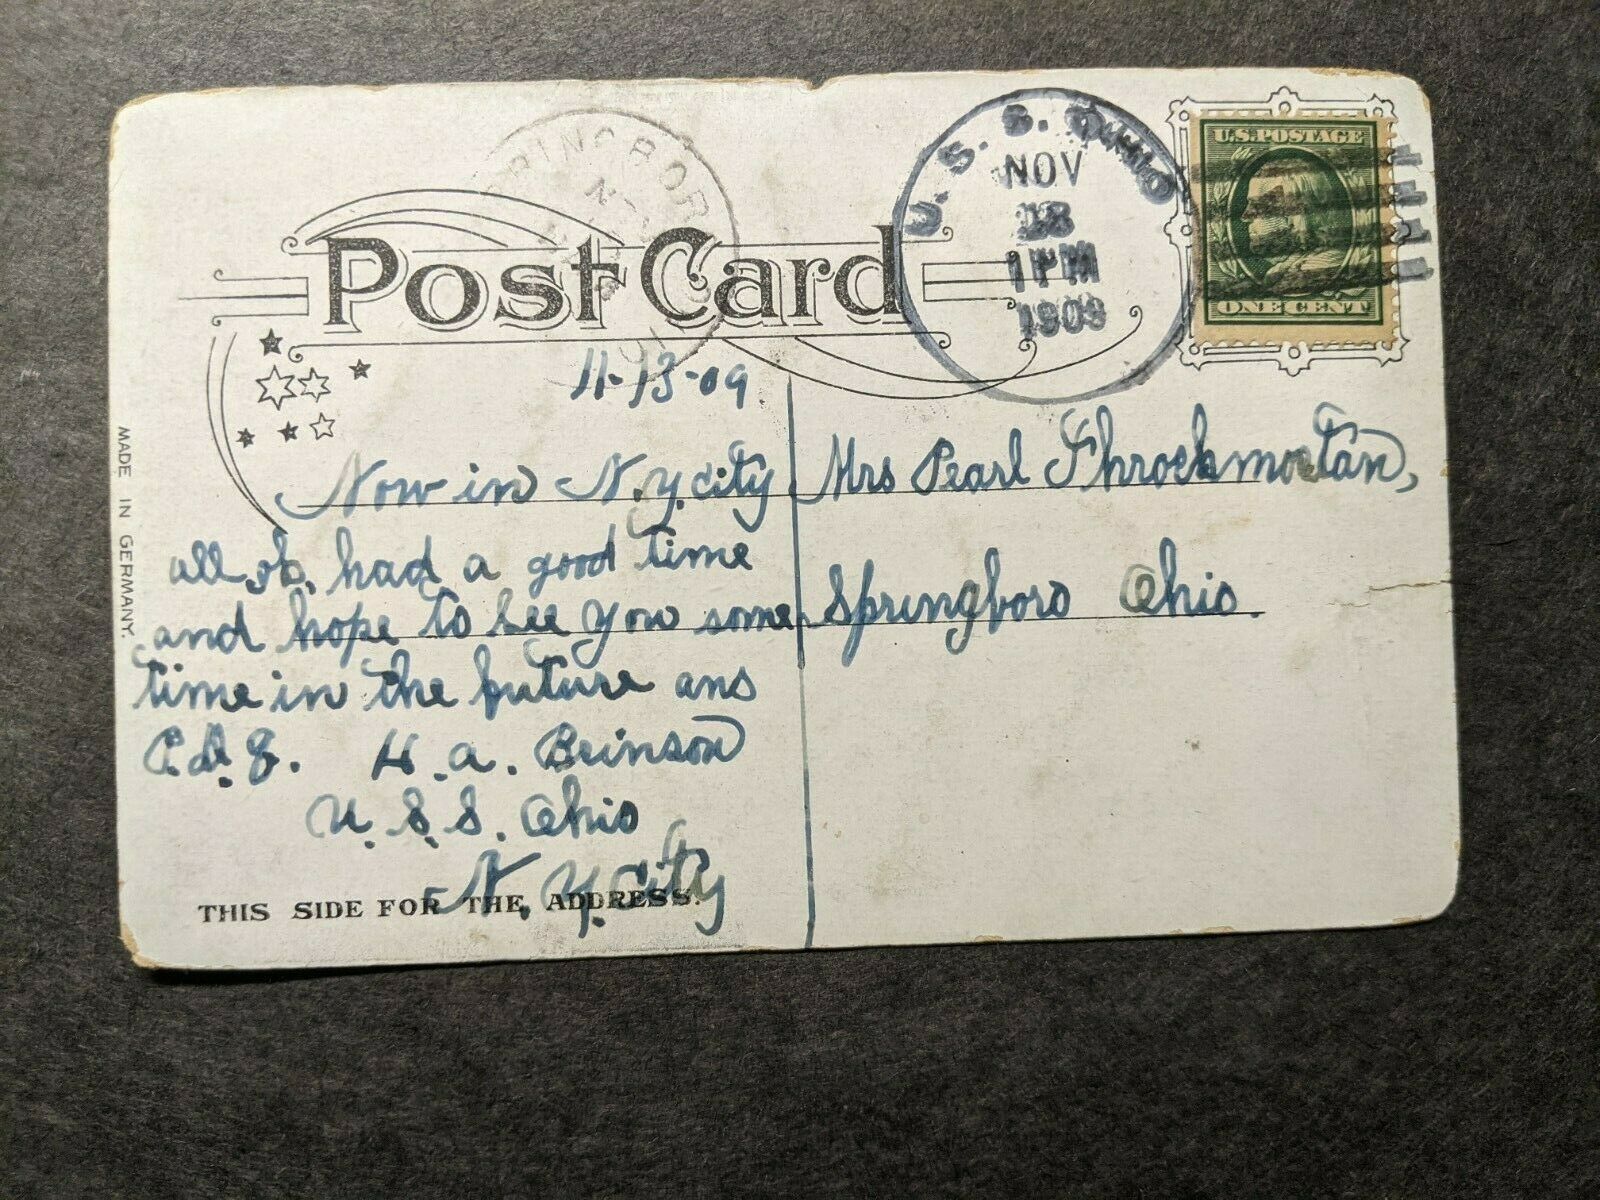 SPRINGBOR
U. S. S. OHIO
NOV
1 PM
1909
U.S. POSTAGE
ONE CENT
Post Card
MADE IN GERMANY.
11-13-09
Now in N.Y. city
all ok. had a good time
and hope to see you some
time in the future ans
P.D.Q. H. a. Brinson
U.S.S. Ohio
N.Y. City
Mrs Pearl Throckmortan,
Springboro Ohio.
THIS SIDE FOR THE ADDRESS.